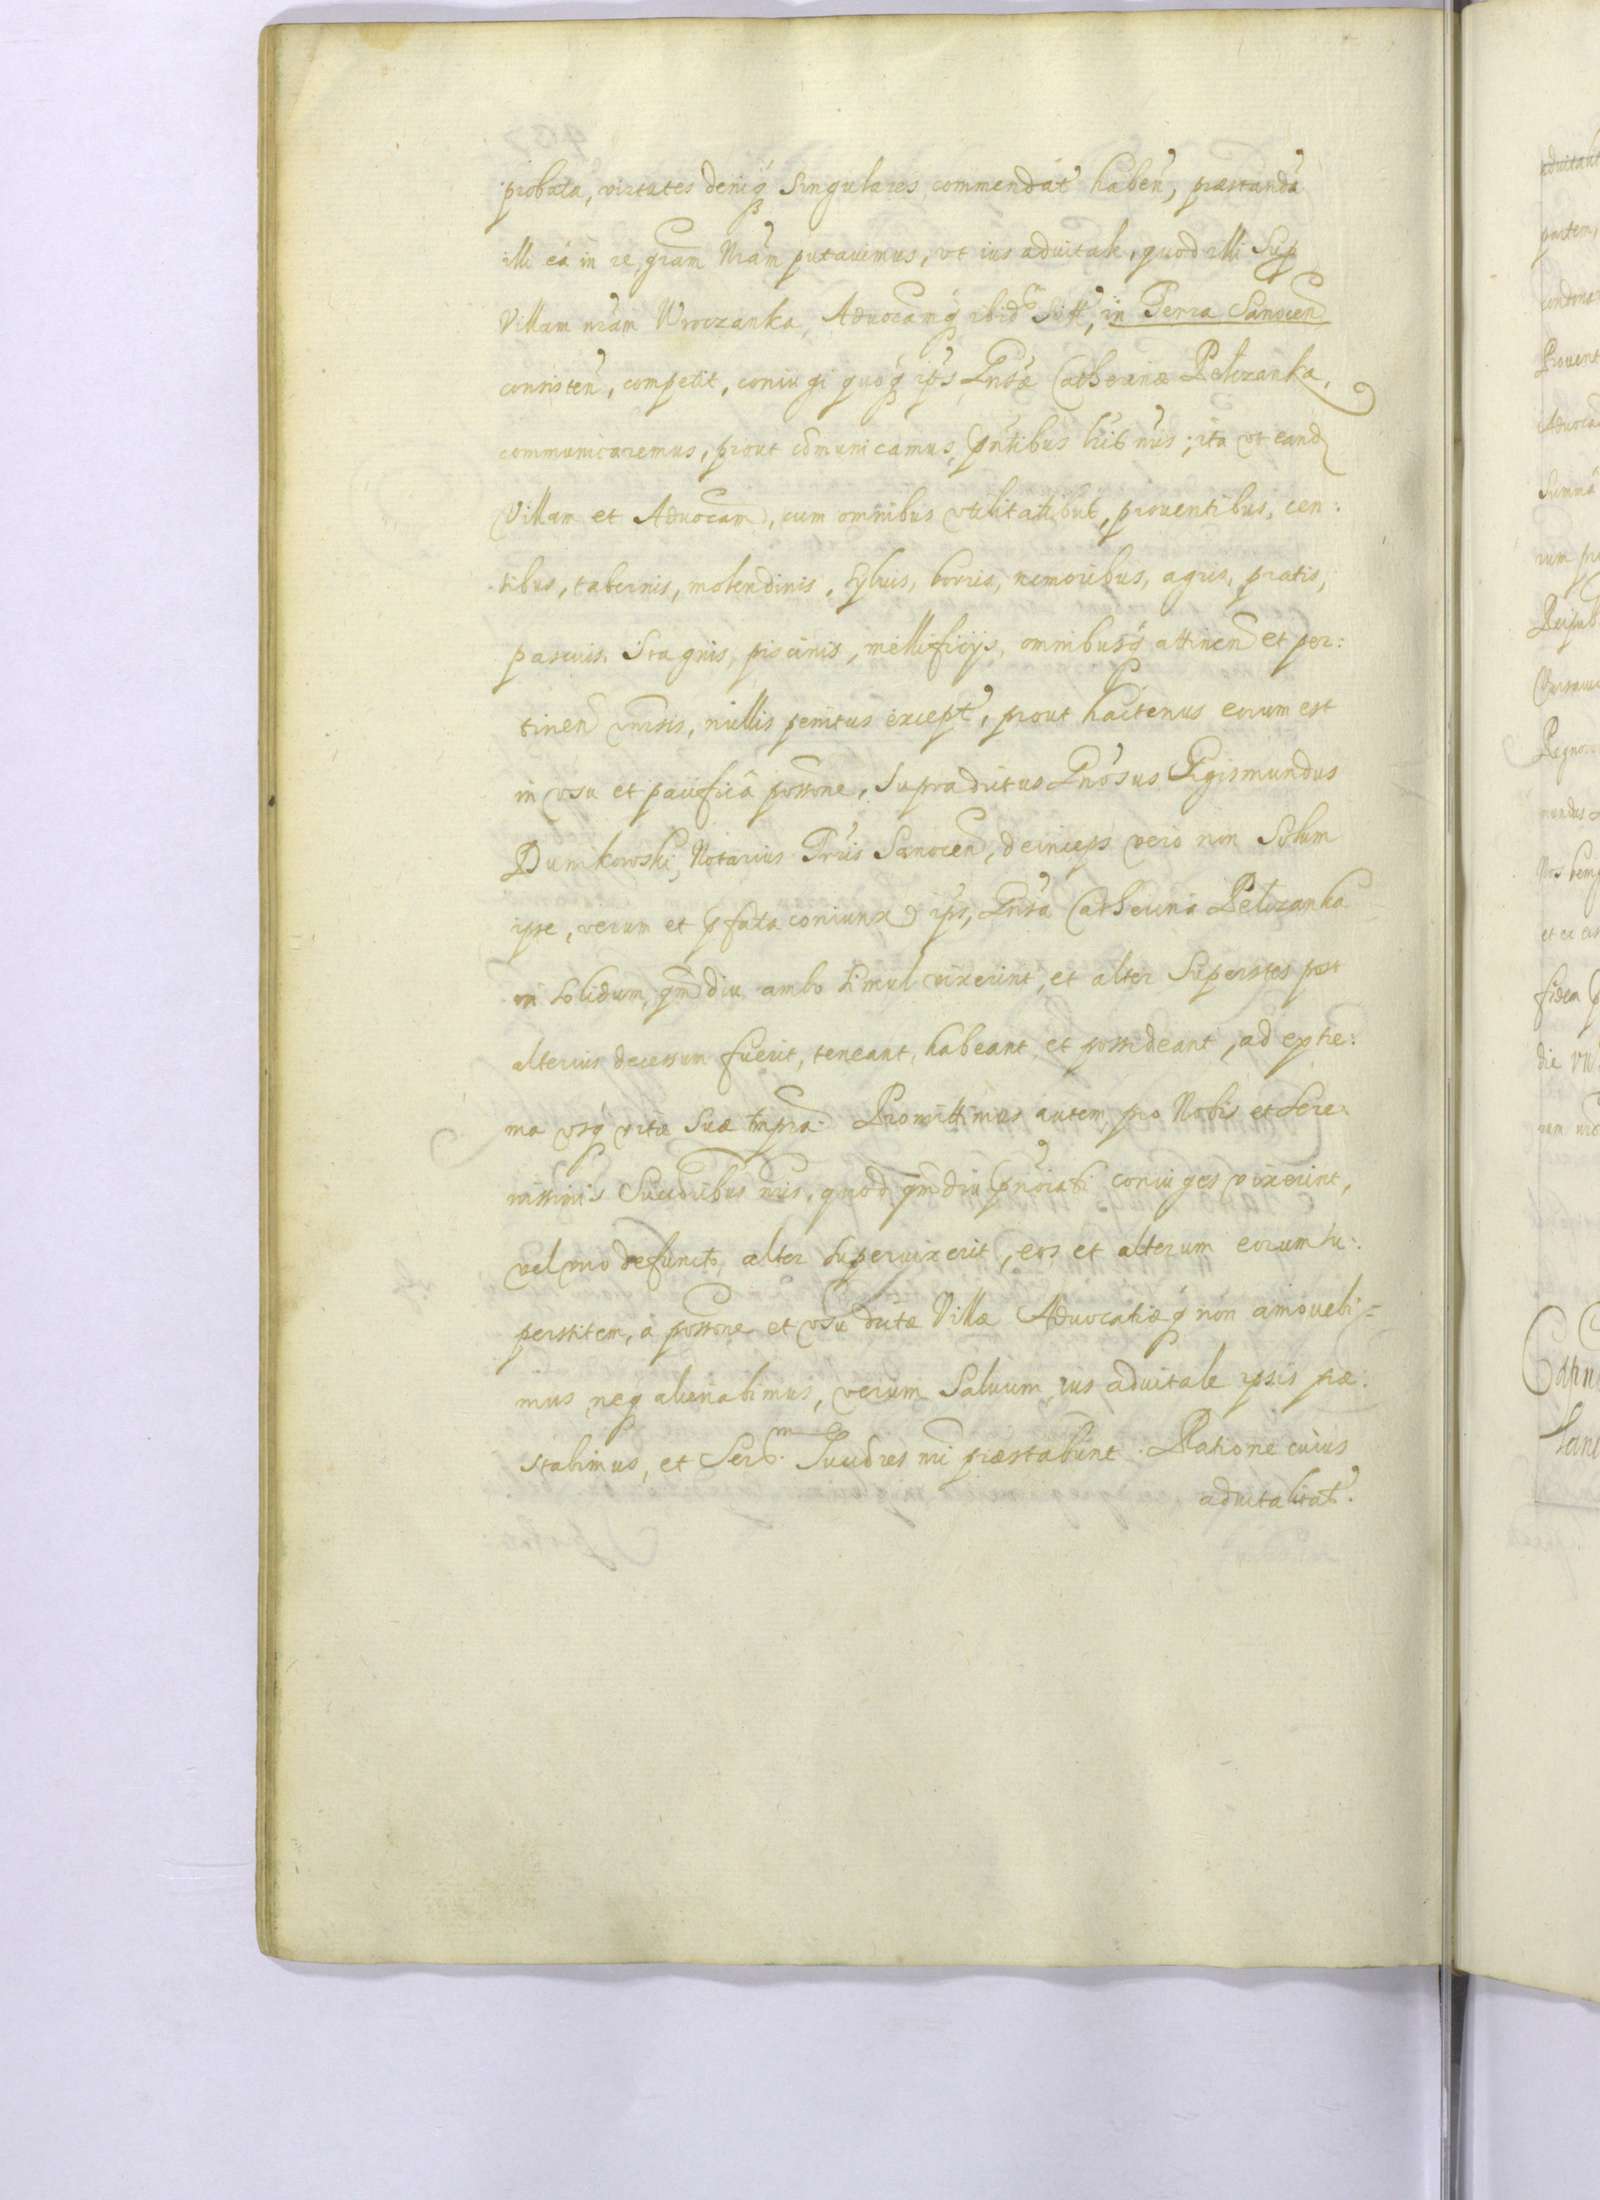 probata, virtutes deniq singulares commendat haben, præstanda
illi ea in re, gram Nram putauimus, vt ius aduitale, quod illi Sup
Villam nram Wroczanka, Aduocamq ibid Sitt, in Terra Sanocen
consisten, competit, coniugi quoq ips Gnsæ Catherinæ Pelczanka,
communicaremus, prout comunicamus, pntibus lrib nris; ita vt eand
Villam et Aduocam, cum omnibus vtilitatibus, prouentibus, cen:
sibus, tabernis, molendinis, syluis, borris, nemoribus, agris, pratis,
pascuis, Stagnis, piscinis, mellificijs, omnibusq attinen et per:
tinen vnisis, nullis penitus except, prout hactenus eorum est
in vsu et pacifica possone, supradictus Gnosus Sigismundus
Dunikowski, Notarius Trris Sanocen, deinceps vero non Solum
ipse, verum et pfata coniunx ips, Gnsa Catherina Pelczanka
in solidum, qmdiu ambo simul vixerint, et alter Superstes post
alterius decessum fuerit, teneant, habeant et possideant, ad extre:
ma vsq vitæ suæ tmpra. Promittimus autem pro Nobis et Sere
nissimis Succoribus nris, quod qmdiu pnoiati coniuges vixerint,
vel vno defuncto, alter superuixerit, eos et alterum eorum su:
perstitem, a possone et vsu dictæ Villæ Aduocatiæq non amouebi=
mus neq alienabimus, verum Saluum ius aduitale ipsis præ:
stabimus, et Ser.m Succres nri præstabunt. Ratione cuius
aduitalitat.